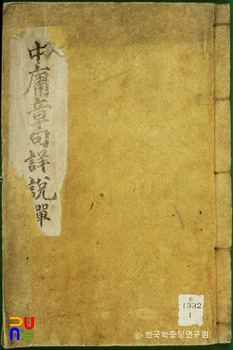 中庸章句詳說單
1332
1
RUNC
© 한국학중앙연구원